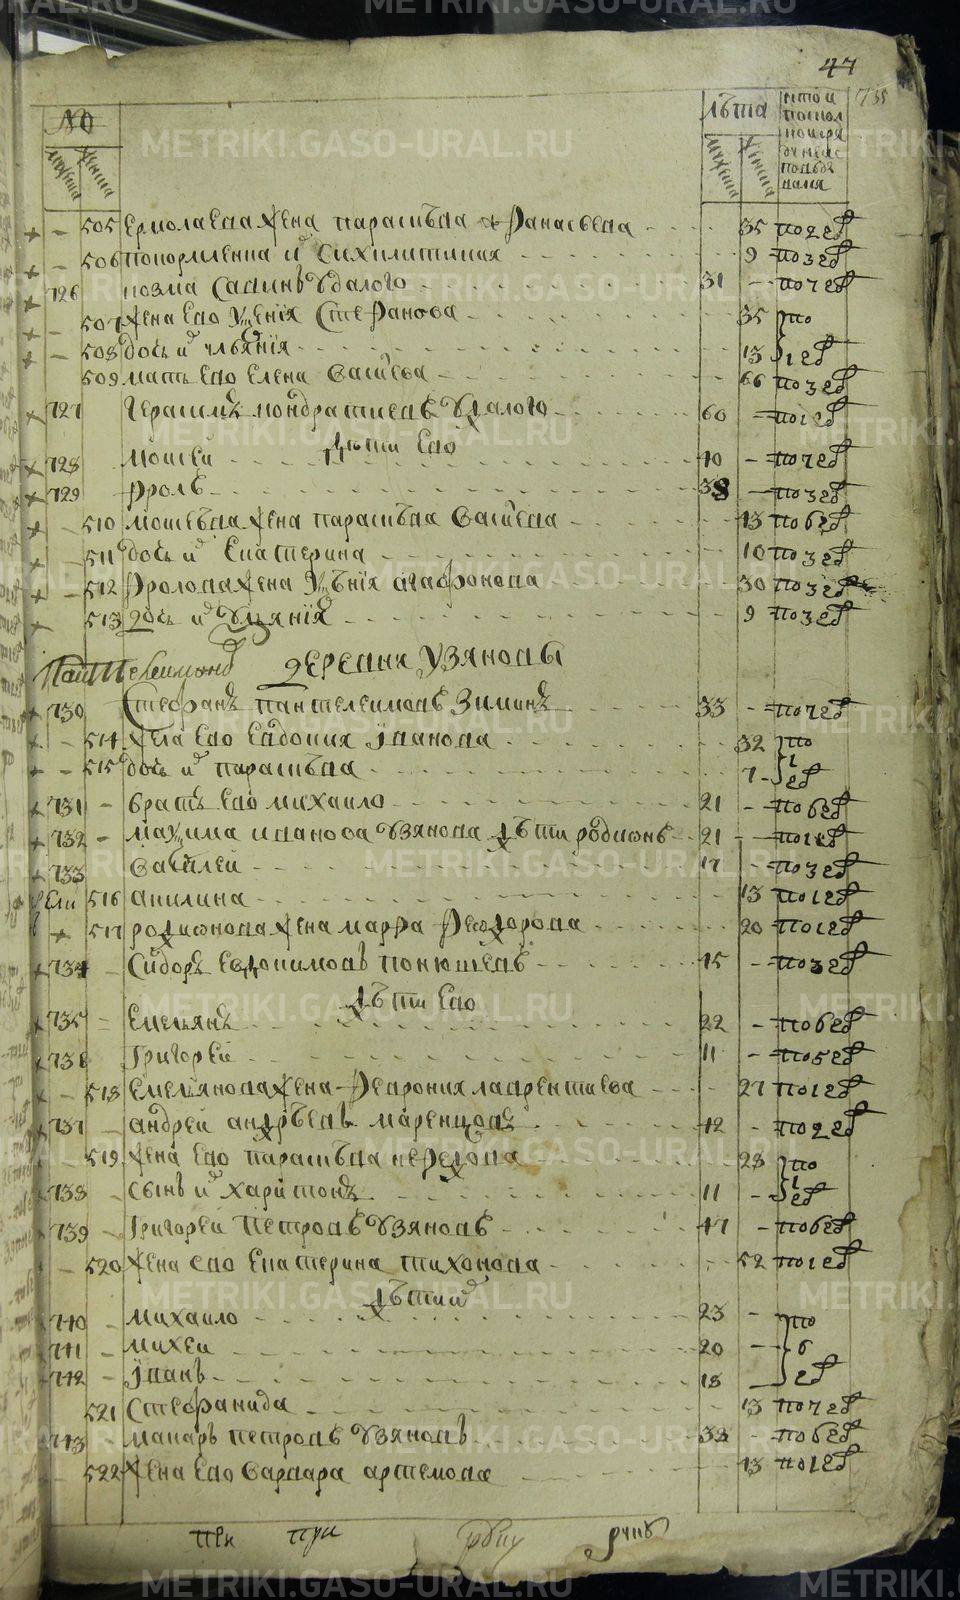 METRIKI.GASO-URAL.RU
47
№ лѣта
мужеска женска мужеска женска
505 Ермолаева жена парасковѣа Афанасьева 35 по 2 ев
506 9 по 3 ев
726 козма Савинъ Удалого 31 по ев
507 жена ево Стефанова 35 по
508 дочь и ульянiя 13 1 ев
509 мать ево елена Василева 66 по 3 ев
727 герасимъ кондратиевъ Удалого 60 по 1 ев
дѣти ево
728 моисеи 40 по ев
729 Фролъ 38 по 3 ев
510 моисеѣва жена парасковѣа Василева 43 по 6 ев
511 дочь и екатерина 10 по 3 ев
512 Фролова жена агафонова 30 по 3 ев
513 дочь и Ульянiя 9 по 3 ев
деревни Узяновы
730 Стефанъ пантелеимовъ Зиминъ 33 по ев
514 жена ево евдокия Iванова 32 по
515 дочь и парасковѣа 7 1 ев
731 братъ ево михаило 21 по 6 ев
732 максима иванова Узянова дѣти родионъ 21 по 1 ев
733 Василеи 17 по 3 ев
516 акилина 13 по 1 ев
517 родионова жена марфа Феодорова 20 по 1 ев
734 Сидоръ Евдокимовъ конюшевъ 45 по 3 ев
дѣти ево
735 Емельянъ 22 по 6 ев
736 Григореи 11 по 5 ев
518 емельянова жена Феврония лаврентиева 27 по 1 ев
737 андреи андрѣевъ маренцовъ 42 по 2 ев
519 жена ево парасковѣа неФедова 28 по
738 сынъ и харитонъ 11 1 ев
739 Григореи Петровъ Узяновъ 47 по 6 ев
520 жена ево екатерина тихонова 52 по 1 ев
дѣти и
740 михаило 23 по
741 михеи 20 6
742 Iванъ 18 ев
521 Стефанида 13 по ев
743 макаръ петровъ Узяновъ 38 по 6 ев
522 жена ево варвара артемова 43 по 1 ев